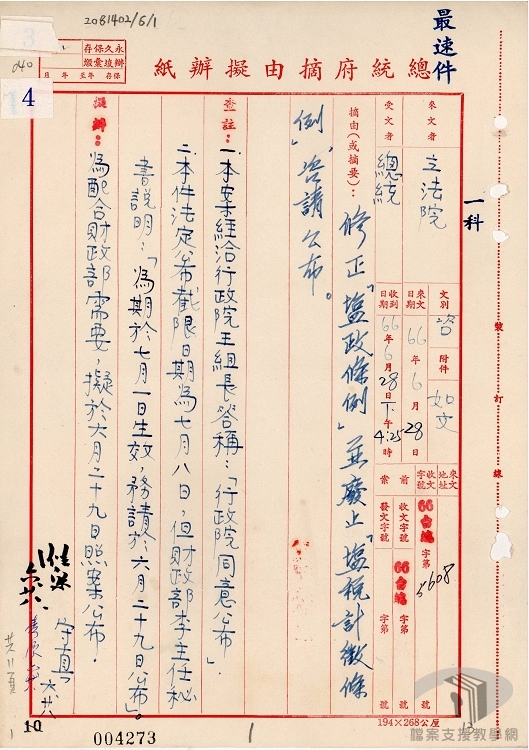 2081402/6/1
最速件
永久保存
總統府摘由擬辦紙
4
一科
來文者
立法院
受文者
總統
文別
咨
附件
如文
來文日期
66年6月28日
收到日期
66年6月28日下午4:25時
來文地址
收文字號
66台總字第5608
前案
收文字號
字第
發文字號
字第
摘由(或摘要):
修正「塩政條例」並廢止「塩稅計徵條
例」,咨請公布。
查註:
一、本案經洽行政院王組長答稱:「行政院同意公布」。
二、本件法定公布截限日期為七月八日,但財政部李主任秘
書說明:「為期於七月一日生效,務請於六月二十九日公布」。
擬辦:
為配合財政部需要,擬於六月二十九日照案公布。
裝訂線
共11頁
10
004273
1
13
194×268公厘
檔案支援教學網